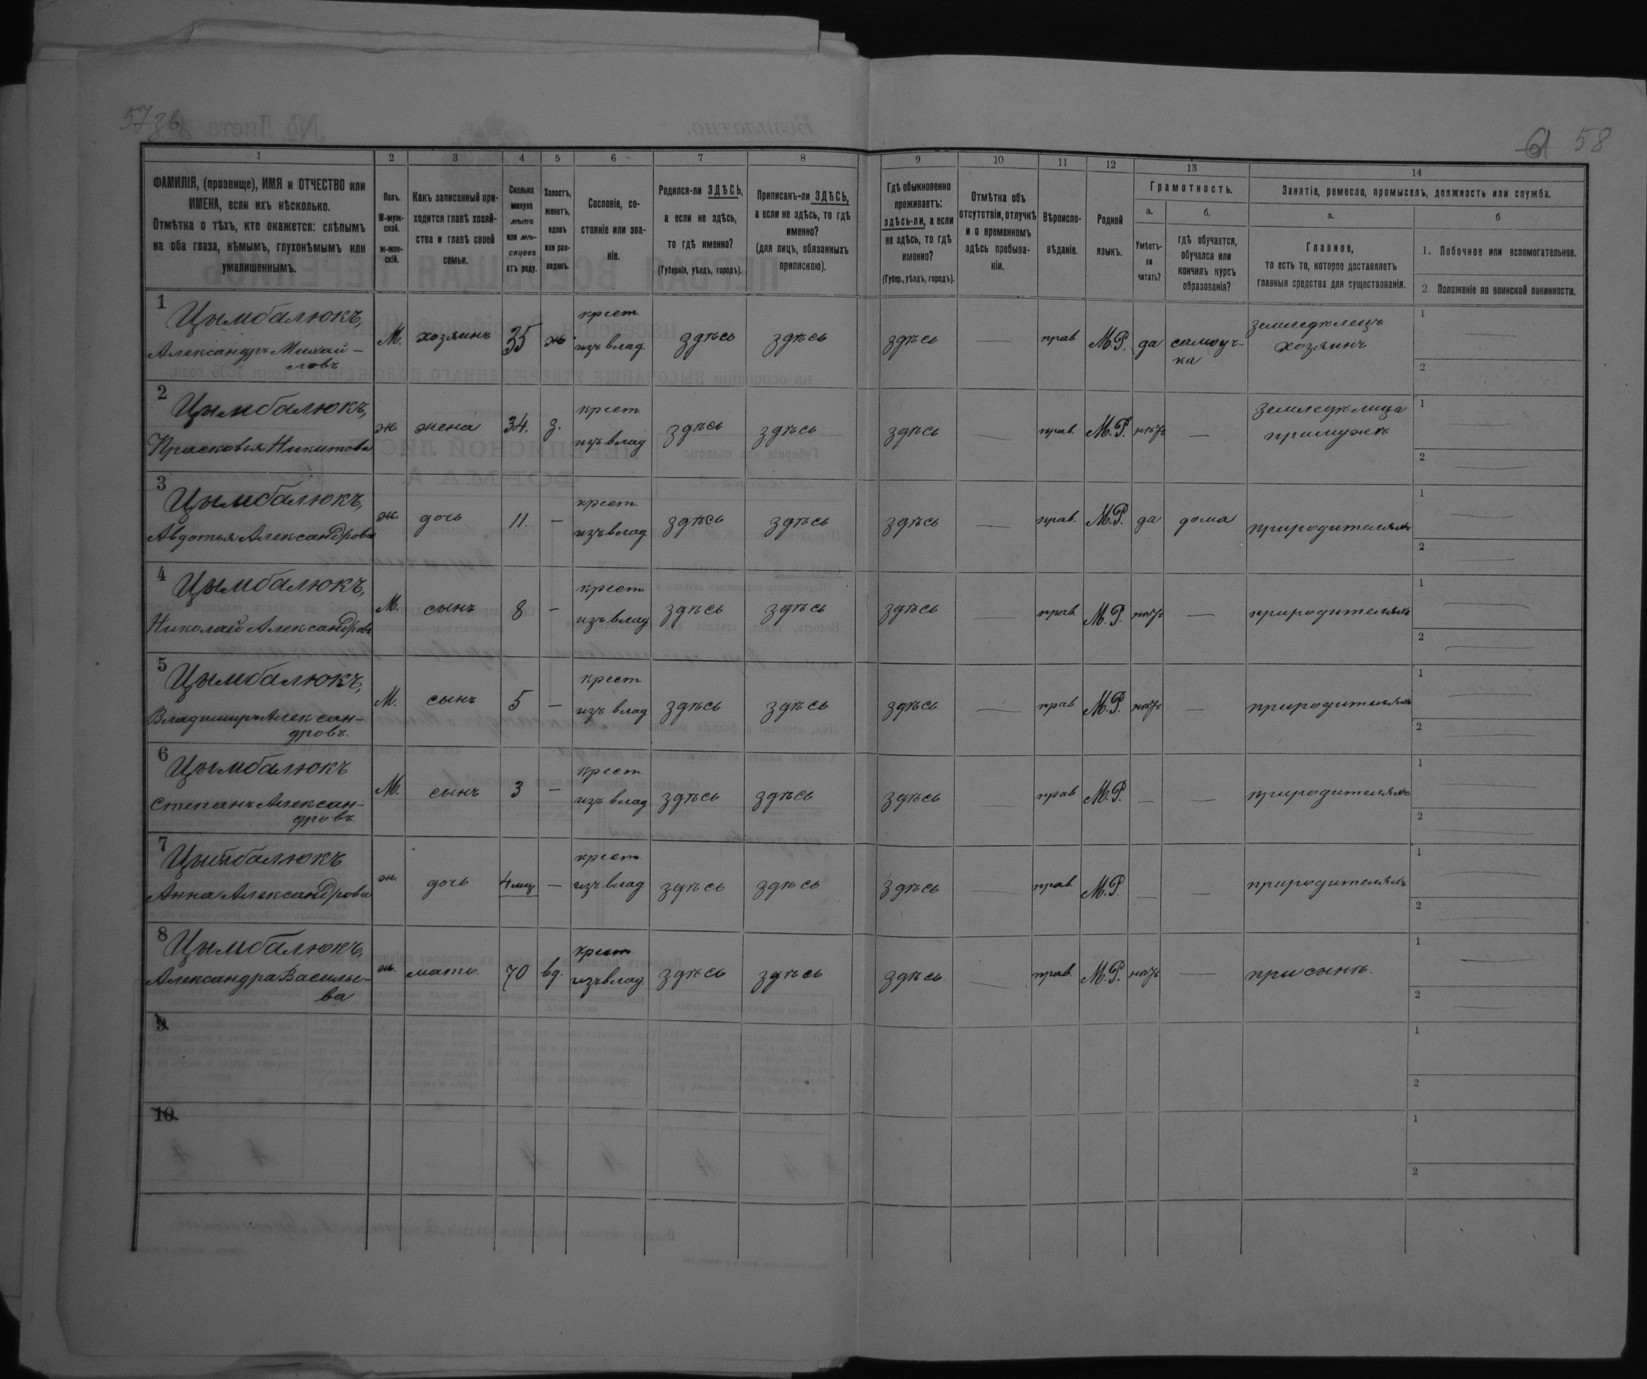 57зв
58
1 2 3 4 5 6 7 8 9 10 11 12 13 14
ФАМИЛІЯ, (прозвище), ИМЯ и ОТЧЕСТВО или ИМЕНА, если ихъ нѣсколько.
Отмѣтка о тѣхъ, кто окажется: слѣпымъ на оба глаза, нѣмымъ, глухонѣмымъ или умалишеннымъ.
Полъ.
М-мужской.
ж-женскій.
Какъ записанный приходится главѣ хозяйства и главѣ своей семьи.
Сколько минуло лѣтъ или мѣсяцевъ отъ роду.
Холостъ, женатъ, вдовъ или разведенъ.
Сословіе, состояніе или званіе.
Родился-ли ЗДѢСЬ, а если не здѣсь, то гдѣ именно?
(Губернія, уѣздъ, городъ).
Приписанъ-ли ЗДѢСЬ, а если не здѣсь, то гдѣ именно?
(для лицъ, обязанныхъ припискою).
Гдѣ обыкновенно проживаетъ: здѣсь-ли, а если не здѣсь, то гдѣ именно?
(Губер., уѣздъ, городъ).
Отмѣтка объ отсутствіи, отлучкѣ и о временномъ здѣсь пребываніи.
Вѣроисповѣданіе.
Родной языкъ.
Грамотность.
а. Умѣетъ-ли читать?
б. гдѣ обучается, обучался или кончилъ курсъ образованія?
Занятіе, ремесло, промыселъ, должность или служба.
а. Главное,
то есть то, которое доставляетъ главныя средства для существованія.
б
1. Побочное или вспомогательное.
2. Положеніе по воинской повинности.
1 Цымбалюкъ, Александръ Михайловъ М. хозяинъ 35 ж крест. изъ влад здѣсь здѣсь здѣсь — прав М.Р. да самоучка земледѣлецъ хозяинъ 1 — 2 —
2 Цымбалюкъ, Прасковья Никитова ж. жена 34. з. крест изъ влад здѣсь здѣсь здѣсь — прав. М.Р. нѣтъ — земледѣлица примужѣ 1 — 2 —
3 Цымбалюкъ, Авдотья Александрова ж. дочь 11. — крест изъ влад здѣсь здѣсь здѣсь — прав. М.Р. да дома природителяхъ 1 — 2 —
4 Цымбалюкъ, Николай Александровъ М. сынъ 8 — крест изъ влад здѣсь здѣсь здѣсь — прав М.Р. нѣтъ — природителяхъ 1 — 2 —
5 Цымбалюкъ, Владимиръ Александровъ. М. сынъ 5 — крест изъ влад здѣсь здѣсь здѣсь — прав М.Р. нѣтъ — природителяхъ 1 — 2 —
6 Цымбалюкъ Степанъ Александровъ М. сынъ 3 — крест изъ влад здѣсь здѣсь здѣсь — прав М.Р. — — природителяхъ 1 — 2 —
7 Цымбалюкъ Анна Александрова ж. дочь 4 мц — крест изъ влад здѣсь здѣсь здѣсь — прав М.Р — — природителяхъ 1 — 2 —
8 Цымбалюкъ, Александра Васильева ж. мать 70 вд. крест изъ влад здѣсь здѣсь здѣсь — прав М.Р. нѣтъ — присынѣ. 1 — 2 —
9 1 2
10 1 2